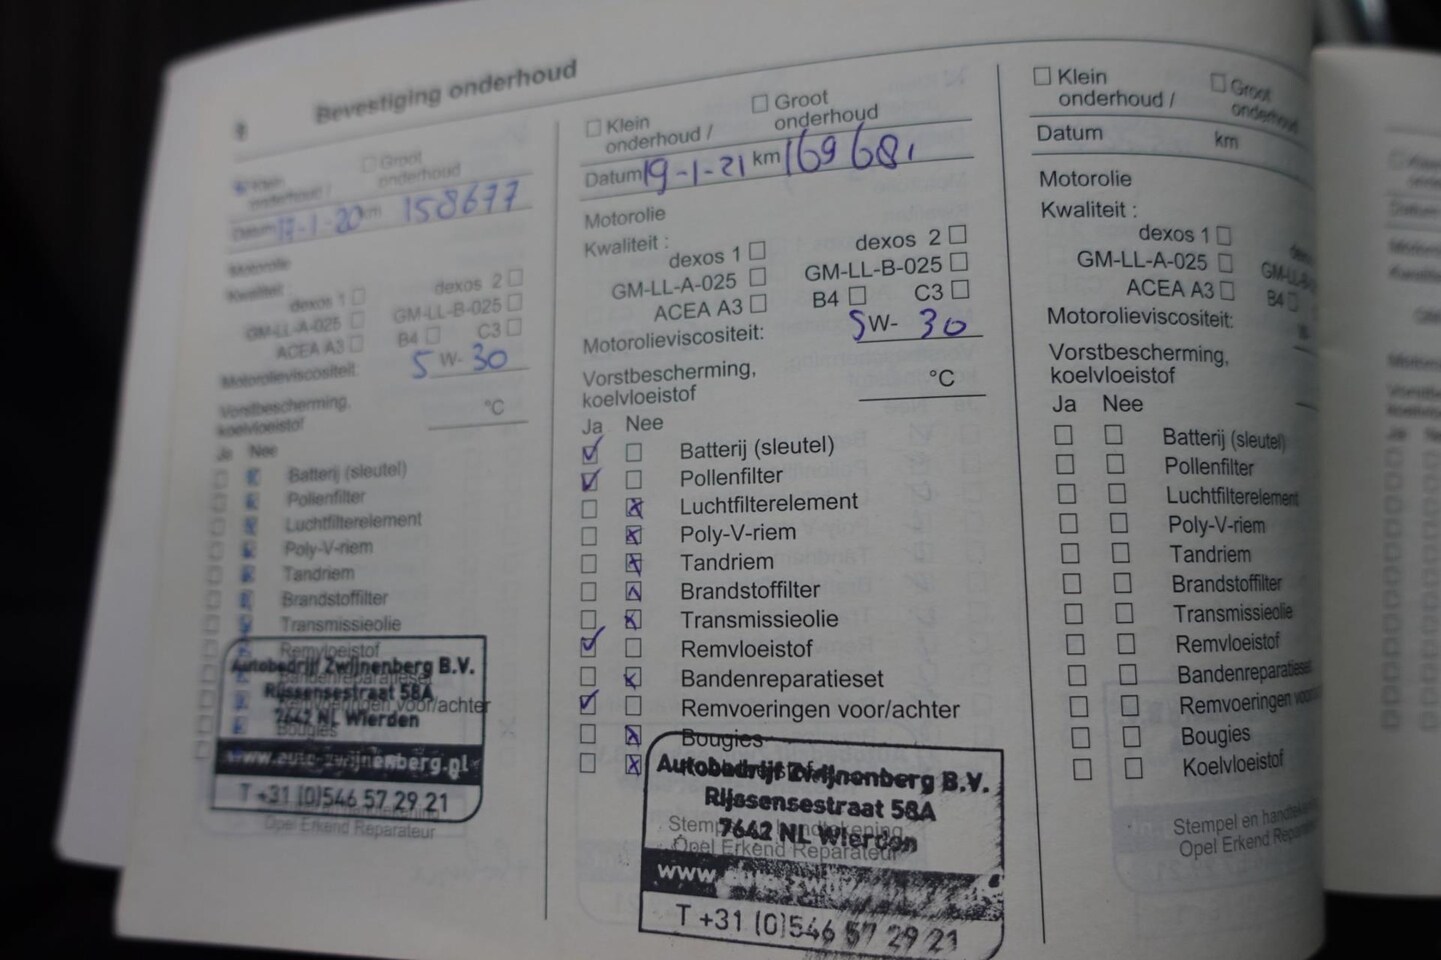 Bevestiging onderhoud
Klein onderhoud /
Groot onderhoud
Datum 17-1-20 km 158677
Motorolie
Kwaliteit
dexos 1
dexos 2
GM-LL-A-025
GM-LL-B-025
ACEA A3
B4
C3
Motorolieviscositeit:
5 W- 30
Vorstbescherming,
koelvloeistof
°C
Ja Nee
Batterij (sleutel)
Pollenfilter
Luchtfilterelement
Poly-V-riem
Tandriem
Brandstoffilter
Transmissieolie
Remvloeistof
Bandenreparatieset
Remvoeringen voor/achter
Bougies
Autobedrijf Zwijnenberg B.V.
Rijssensestraat 58A
7642 NL Wierden
www.auto-zwijnenberg.nl
T +31 (0)546 57 29 21
Opel Erkend Reparateur
Klein
onderhoud /
Groot
onderhoud
Datum 19-1-21 km 169681
Motorolie
Kwaliteit :
dexos 1
dexos 2
GM-LL-A-025
GM-LL-B-025
ACEA A3
B4
C3
Motorolieviscositeit:
5 W- 30
Vorstbescherming,
koelvloeistof
°C
Ja Nee
Batterij (sleutel)
Pollenfilter
Luchtfilterelement
Poly-V-riem
Tandriem
Brandstoffilter
Transmissieolie
Remvloeistof
Bandenreparatieset
Remvoeringen voor/achter
Bougies
Autobedrijf Zwijnenberg B.V.
Rijssensestraat 58A
7642 NL Wierden
Stempel en handtekening
Opel Erkend Reparateur
www
T +31 (0)546 57 29 21
Klein
onderhoud /
Groot
onderhoud
Datum km
Motorolie
Kwaliteit :
dexos 1
GM-LL-A-025
ACEA A3
B4
Motorolieviscositeit:
Vorstbescherming,
koelvloeistof
Ja Nee
Batterij (sleutel)
Pollenfilter
Luchtfilterelement
Poly-V-riem
Tandriem
Brandstoffilter
Transmissieolie
Remvloeistof
Bandenreparatieset
Remvoeringen
Bougies
Koelvloeistof
Stempel en
Opel Erkend